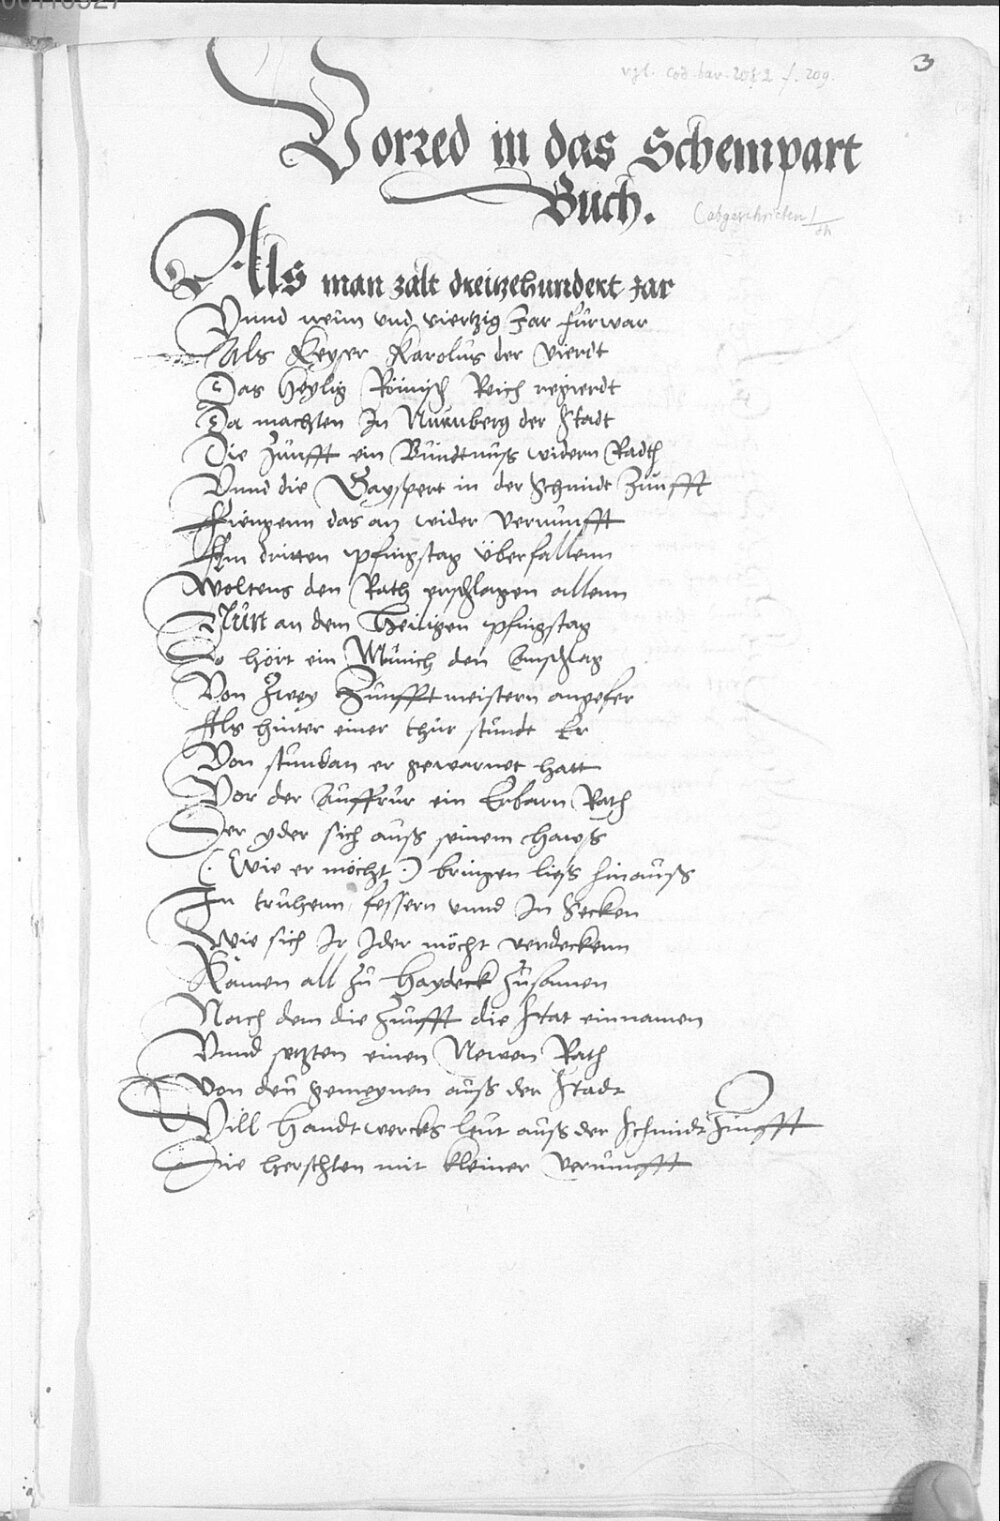 3
vgl. Cod. bav. 2082 f. 209.
Vorred in das Schempart
Buch.
(abgeschrieben)
Als man zalt dreitzehundert Jar
Vnnd neun vnd viertzig Jar fürwar
Als Keyser Karolus der vierdt
Das Heylig Römisch Reich regierdt
Da machten In Nurnberg der Stadt
Die Zünfft ein Bündtnuß widern Radth
Vnnd die Gayspert in der Schmidt Zunfft
Fiengenn das an wider vernunfft
Am dritten pfingstag überfallenn
Woltens den Rath erschlagen allenn
Nün an dem Heiligen pfingstag
Do hört ein Münich den Anschlag
Von Zwey Zünfftmeistern angefer
Als hinter einer thür stundt Er
Von stundan er gewarnet hatt
Vor der Auffrur ein Erbarn Rath
Der yder sich auß seinem hauß
(. Wie er möcht .) bringen ließ hinauß
In truhenn fessern vnnd In Secken
Wie sich Ir Jder möcht verdeckenn
Kamen all zu Haydeck zusamen
Nach dem die Zünfft die Stat einnamen
Vnnd setzten einen Newen Rath
Von den gemeynen auß der Stadt
Vill Handtwercks leut auß der Schmidt Zunfft
Die herschten mit kleiner vernunfft